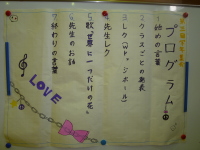 プログラム
1 始めの言葉
2 クラスごとの発表
3 レク
4 先生レク
5 歌「世界に一つだけの花」
6 先生のお話
7 終わりの言葉
LOVE